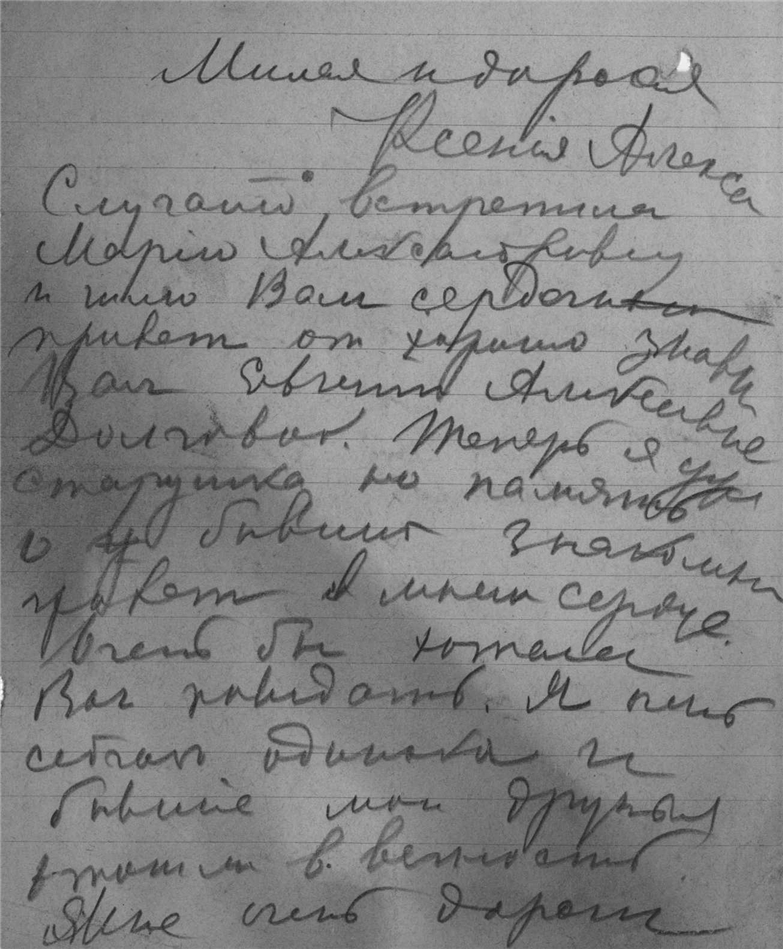 Милая и дорогая
Ксенія Алекса
Случайно встретила
Марію Александровну
и шлю Вам сердечный
привет от хорошо знавш
Вас Евгении Алексеевне
Долговой. Теперь я уже
старушка но память
о бывших знакомых
живет в моем сердце.
Очень бы хотела
Вас повидать. Я очень
сейчас одинока и
бывшие мои друзья
отошли в вечность
очень дороги